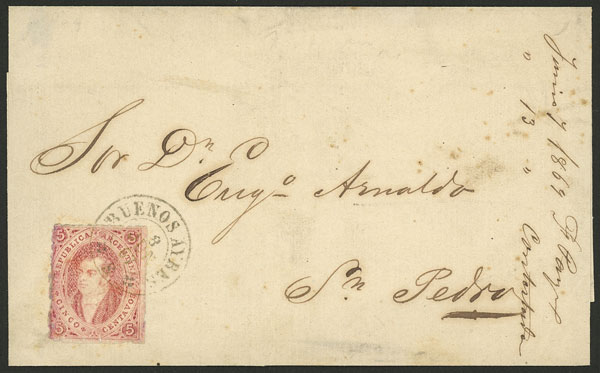 Sor Dn
Eugo Arnaldo
Sn Pedro
Junio 7 1869
" 13 " Contestada
BUENOS AIRES
8
5 REPUBLICA ARGENTINA 5
5 CINCO CENTAVOS 5